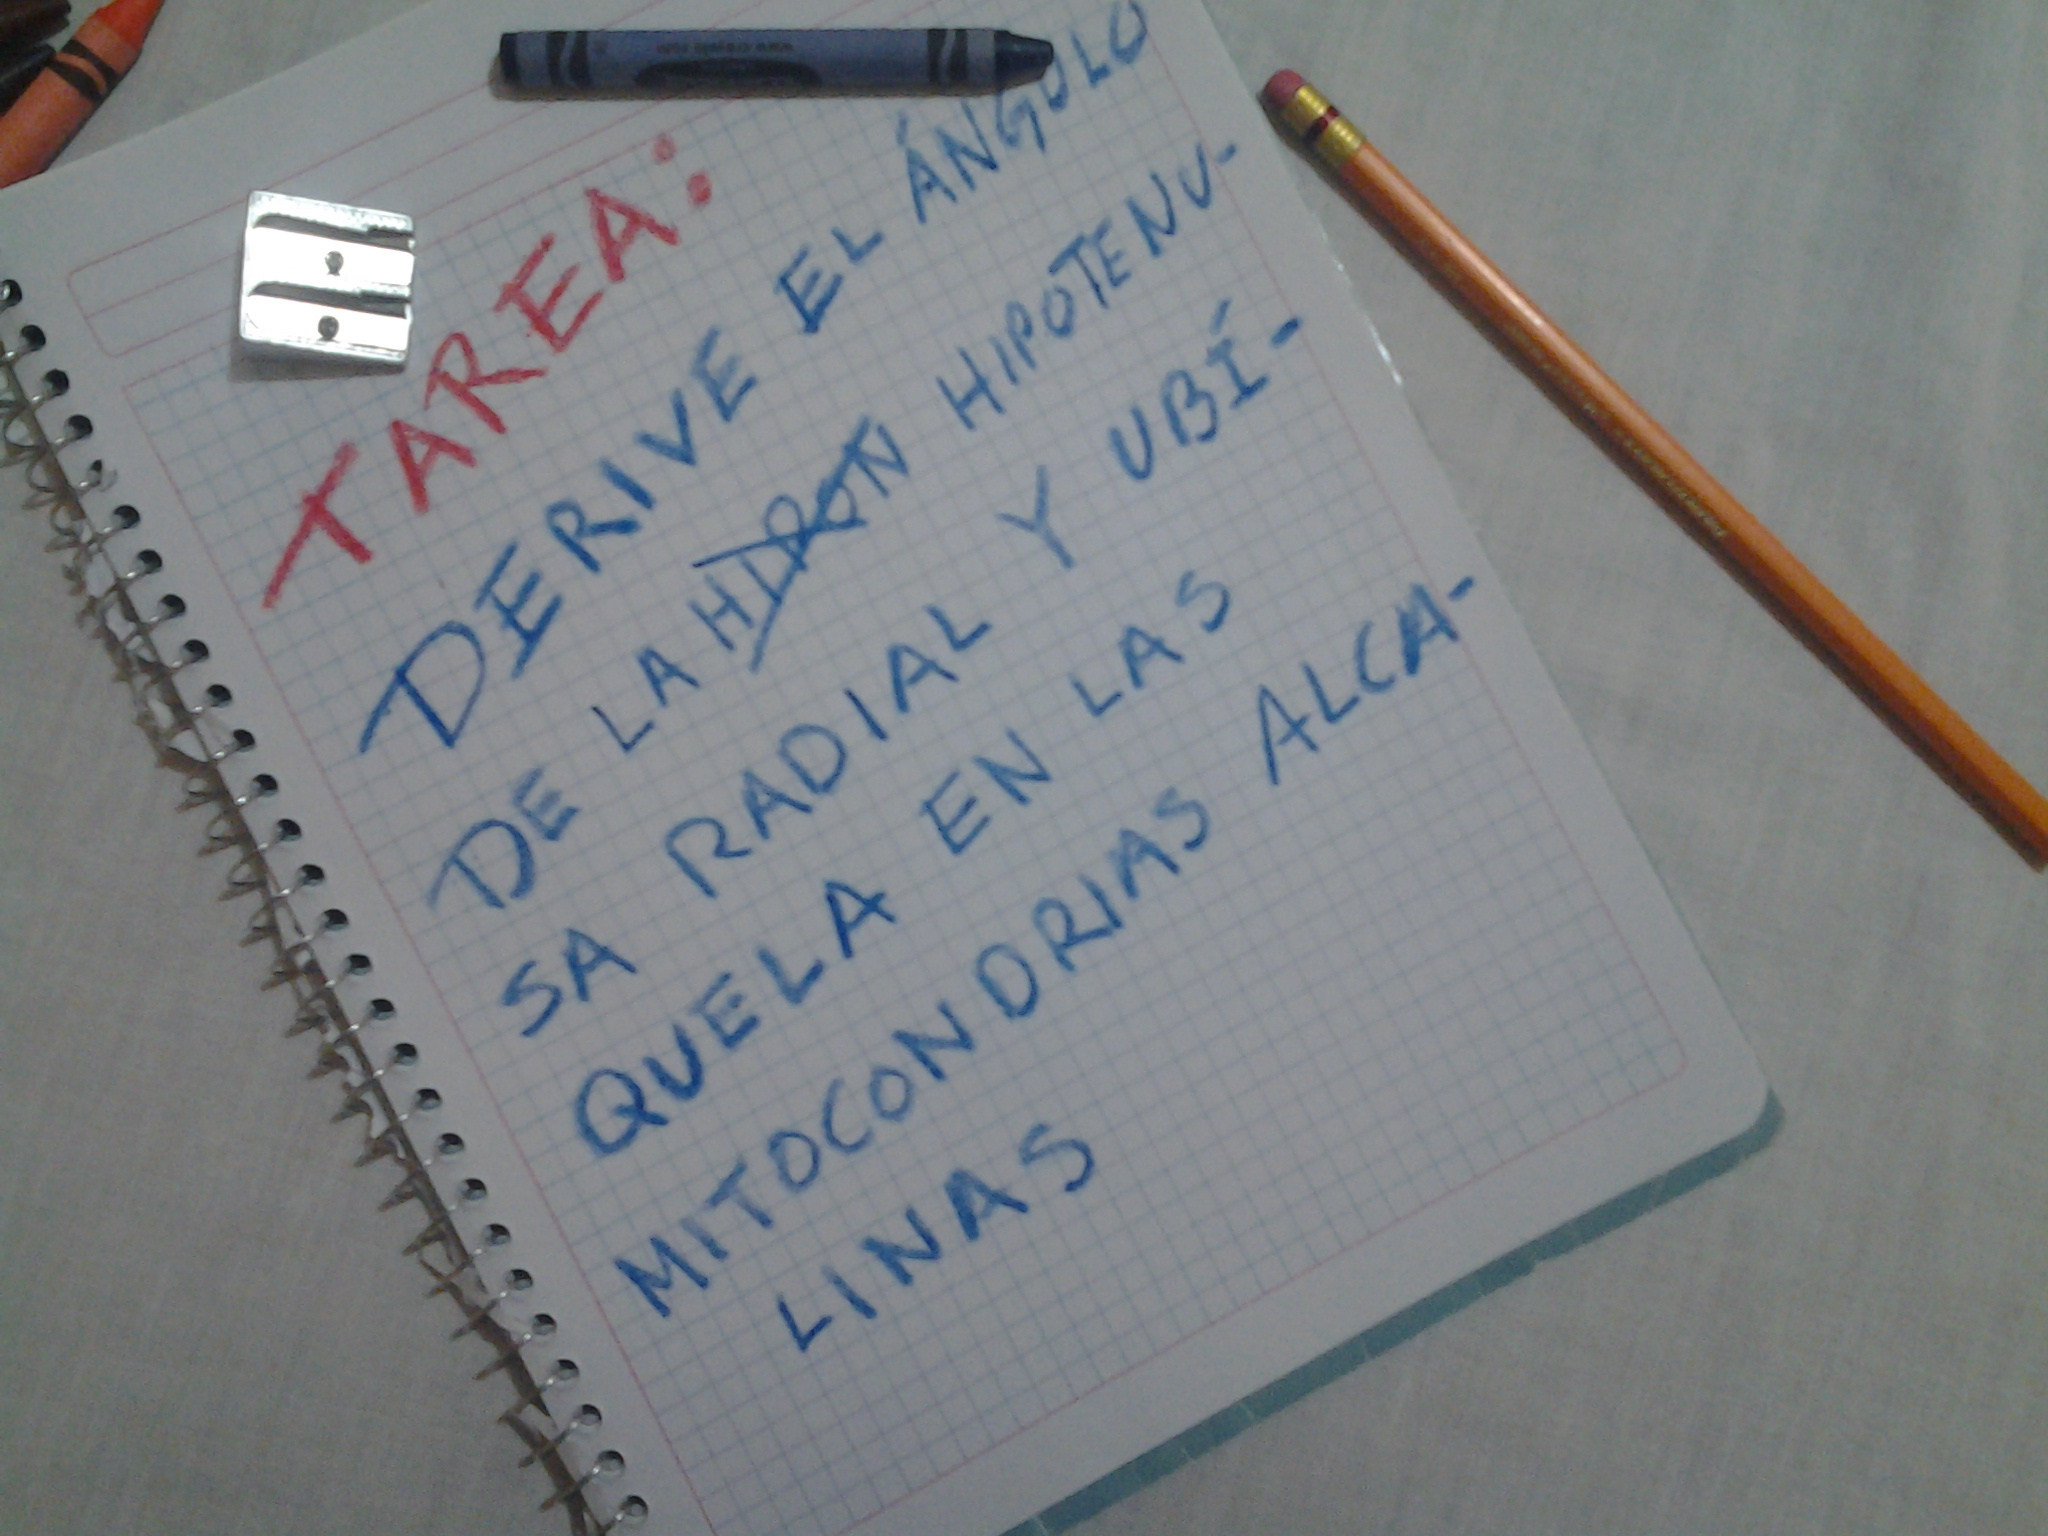 TAREA:
DERIVE EL ÁNGULO
DE LA HIPOTENU-
SA RADIAL Y UBÍ-
QUELA EN LAS
MITOCONDRIAS ALCA-
LINAS